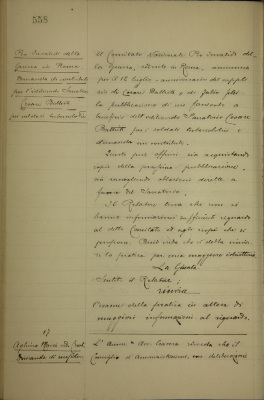 558
Pro Invalidi della
Guerra in Roma
Domanda di contributo
per l'istituendo Sanatorio
Cesare Battisti
per soldati tubercolotici
Il Comitato Nazionale Pro Invalidi del-
la Guerra, sedente in Roma, annuncia
per il 12 luglio, anniversario del suppli-
zio di Cesare Battisti, e di
la pubblicazione di un a
beneficio dell'istituendo Sanatorio Cesare
Battisti pei soldati tubercolotici e
domanda un contributo.
Questo può offrirsi sia acquistando
copie della pubblicazione,
sia inviando oblazioni dirette a
favore del Sanatorio.
Il Relatore trova che non si
hanno informazioni sufficienti riguardo
al detto Comitato ed agli scopi che si
propone. che si debba rinvia-
re la pratica per una maggiore istruttoria
La Giunta
Sentito il Relatore;
rinvia
l'esame della pratica in attesa di
maggiori informazioni al riguardo.
17
Domanda di
L'Amm. Avv. ricorda che il
Consiglio d'Amministrazione, con deliberazione